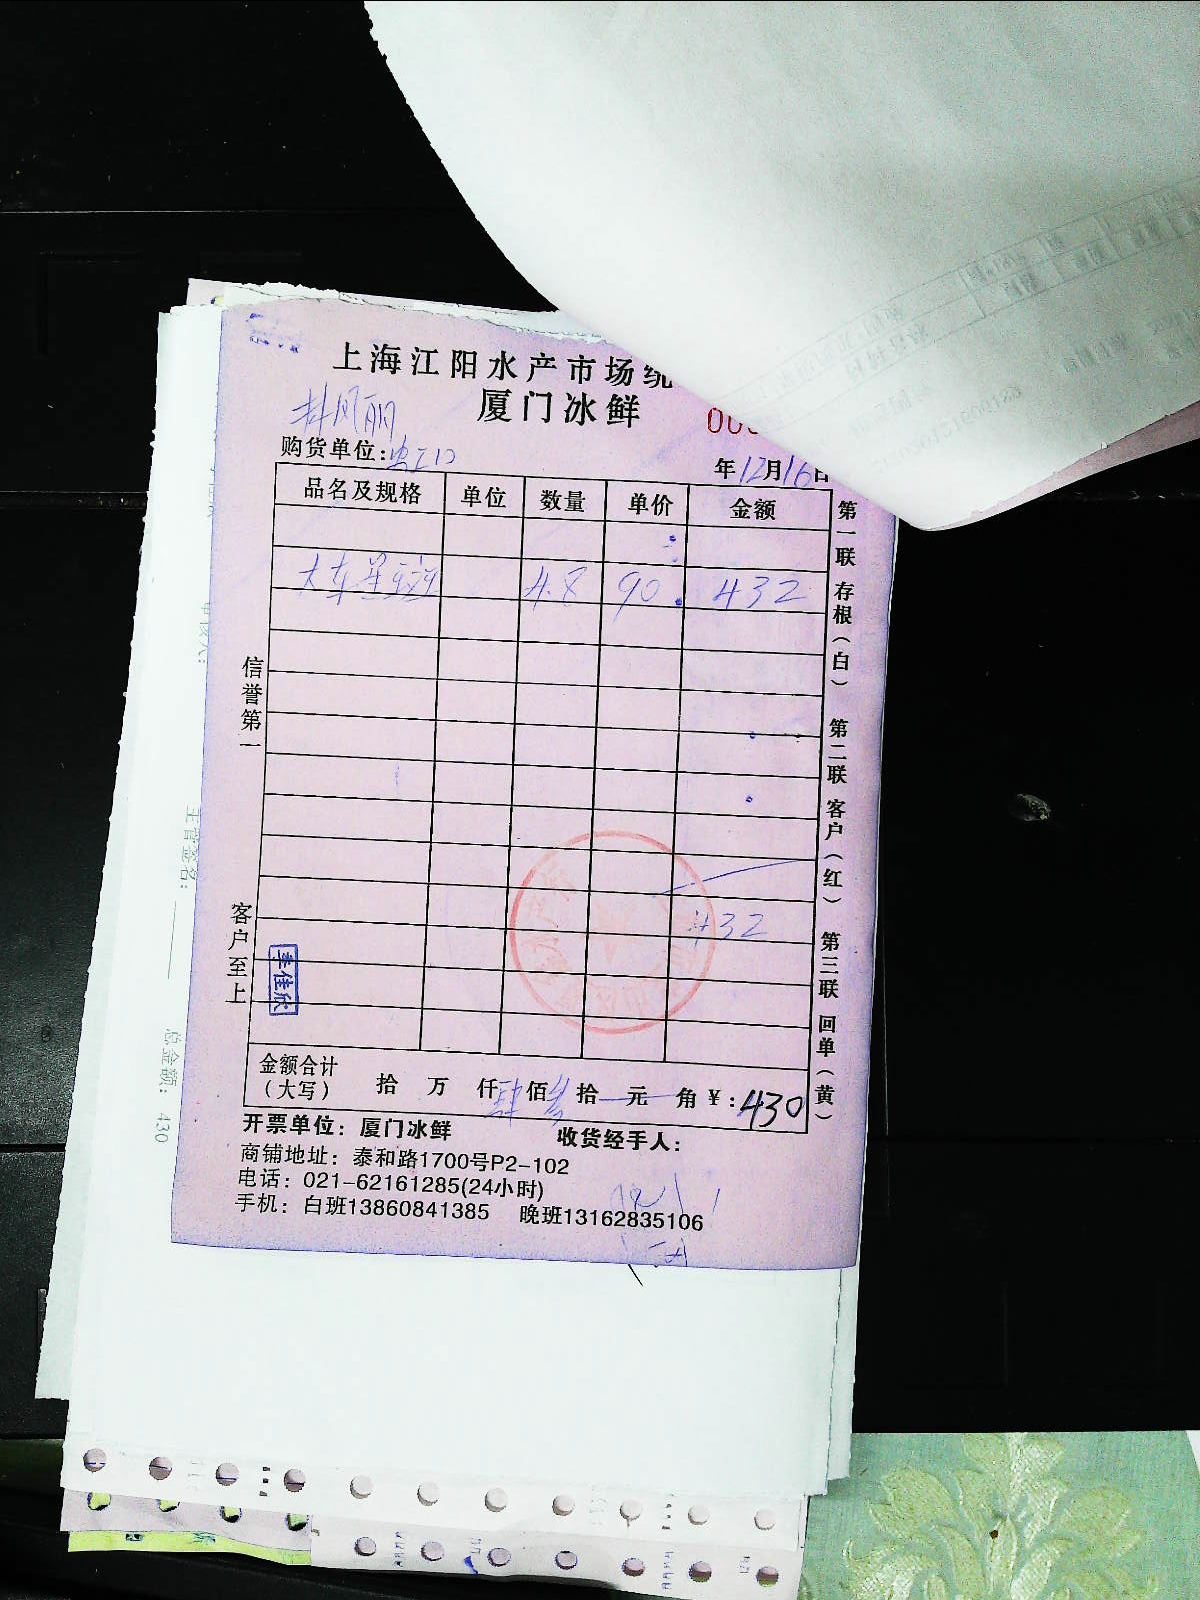 上海江阳水产市场统
厦门冰鲜
购货单位:虹口
年12月16日
品名及规格 单位 数量 单价 金额
4.8 90 432
432
信誉第一
客户至上
李佳欣
第一联 存根（白） 第二联 客户（红） 第三联 回单（黄）
金额合计
（大写） 拾 万 仟肆佰叁拾 元 角 ¥:430
开票单位: 厦门冰鲜 收货经手人:
商铺地址: 泰和路1700号P2-102
电话: 021-62161285(24小时)
手机: 白班13860841385 晚班13162835106
主管签名:
总金额: 430